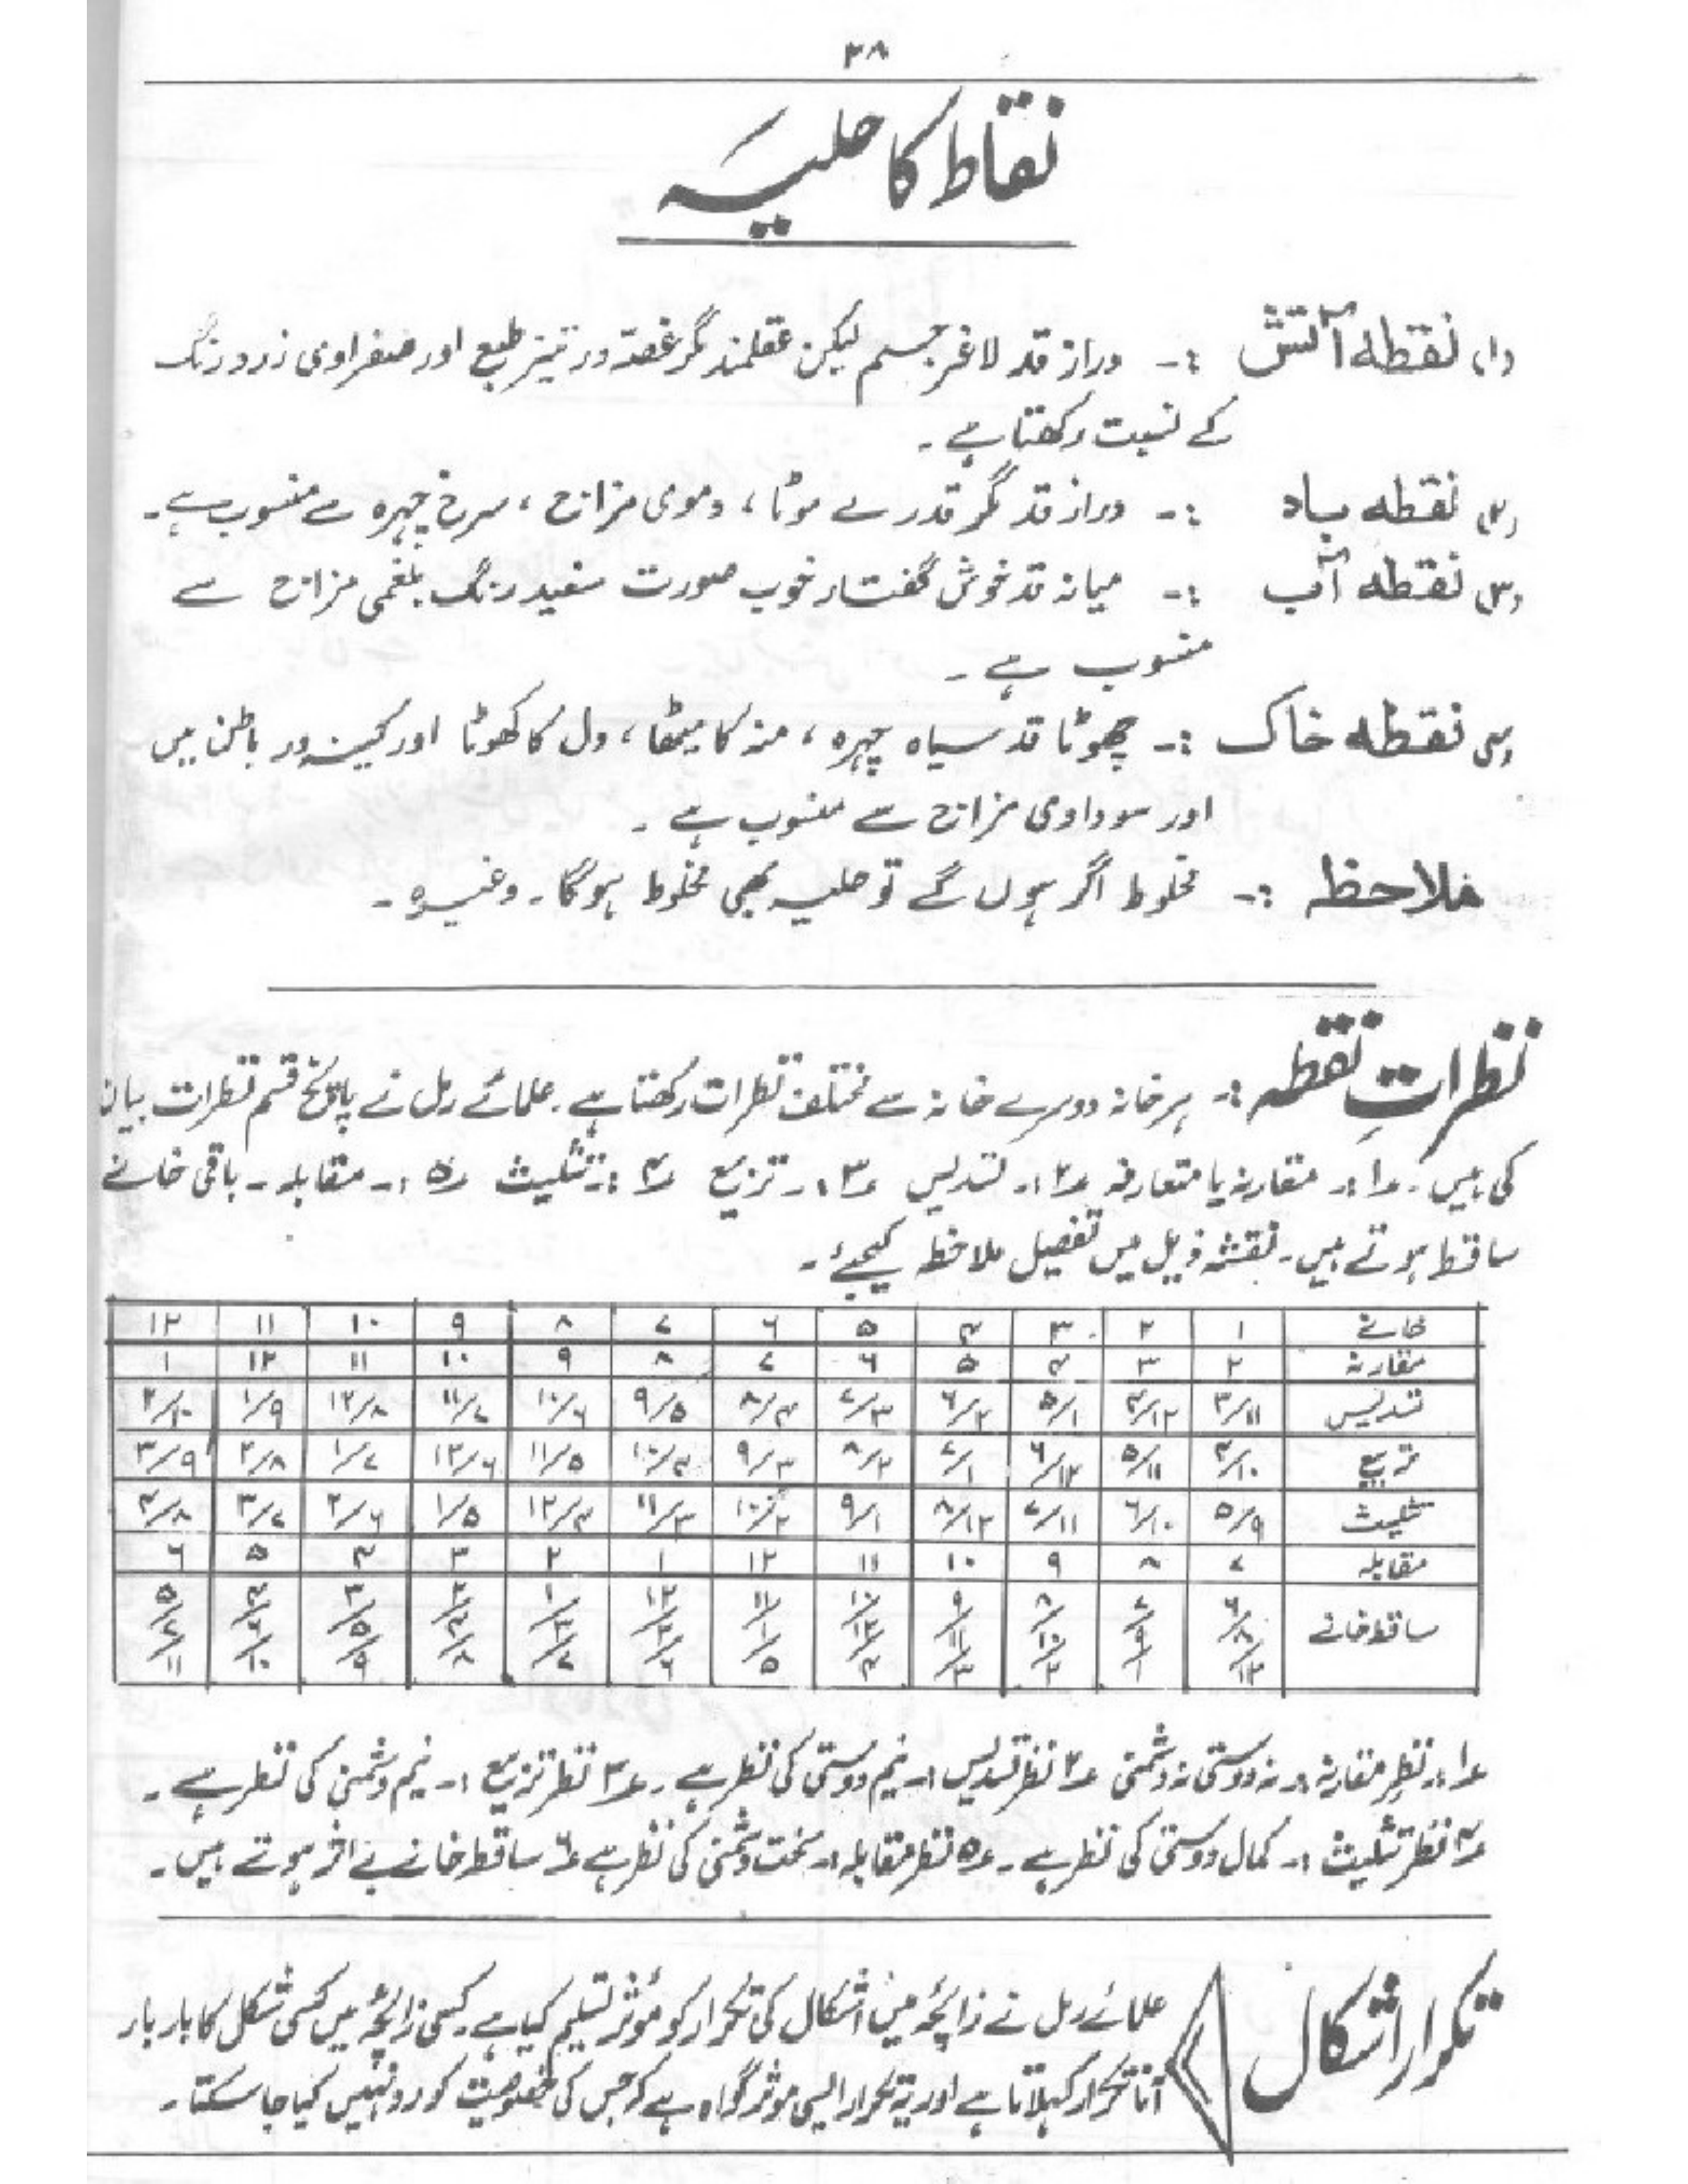 ۳۸
نقاط کا حلیہ
(۱) نقطہ آتش :- دراز قد لاغر جسم لیکن عقلمند مگر غصہ ور تیز طبع اور صفراوی زرد رنگ
کے نسبت رکھتا ہے۔
(۲) نقطہ باد :- دراز قد مگر قدرے موٹا، دموی مزاج، سرخ چہرہ سے منسوب ہے۔
(۳) نقطہ آب :- میانہ قد خوش گفتار خوب صورت سفید رنگ بلغمی مزاج سے
منسوب ہے۔
(۴) نقطہ خاک :- چھوٹا قد سیاہ چہرہ، منہ کا میٹھا، دل کا کھوٹا اور کینہ ور باطن میں
اور سوداوی مزاج سے منسوب ہے۔
ملاحظہ :- مخلوط اگر ہوں گے تو حلیہ بھی مخلوط ہوگا۔ وغیرہ۔
نظراتِ نقطہ :- ہر خانہ دوسرے خانہ سے مختلف نظرات رکھتا ہے۔ علمائے رمل نے پانچ قسم نظرات بیان
کی ہیں۔ ۱؎ :- مقارنہ یا متعارفہ ۲؎ :- تسدیس ۳؎ :- تربیع ۴؎ :- تثلیث ۵؎ :- مقابلہ۔ باقی خانے
ساقط ہوتے ہیں۔ نقشہ ذیل میں تفصیل ملاحظہ کیجئے۔
خانے ۱ ۲ ۳ ۴ ۵ ۶ ۷ ۸ ۹ ۱۰ ۱۱ ۱۲
مقارنہ ۲ ۳ ۴ ۵ ۶ ۷ ۸ ۹ ۱۰ ۱۱ ۱۲ ۱
تسدیس ۳/۱۱ ۴/۱۲ ۵/۱ ۶/۲ ۷/۳ ۸/۴ ۹/۵ ۱۰/۶ ۱۱/۷ ۱۲/۸ ۱/۹ ۲/۱۰
تربیع ۴/۱۰ ۵/۱۱ ۶/۱۲ ۷/۱ ۸/۲ ۹/۳ ۱۰/۴ ۱۱/۵ ۱۲/۶ ۱/۷ ۲/۸ ۳/۹
تثلیث ۵/۹ ۶/۱۰ ۷/۱۱ ۸/۱۲ ۹/۱ ۱۰/۲ ۱۱/۳ ۱۲/۴ ۱/۵ ۲/۶ ۳/۷ ۴/۸
مقابلہ ۷ ۸ ۹ ۱۰ ۱۱ ۱۲ ۱ ۲ ۳ ۴ ۵ ۶
ساقط خانے ۶/۸/۱۲ ۷/۹/۱ ۸/۱۰/۲ ۹/۱۱/۳ ۱۰/۱۲/۴ ۱۱/۱/۵ ۱۲/۲/۶ ۱/۳/۷ ۲/۴/۸ ۳/۵/۹ ۴/۶/۱۰ ۵/۷/۱۱
۱؎ :- نظرِ مقارنہ :- نہ دوستی نہ دشمنی ۲؎ نظر تسدیس :- نیم دوستی کی نظر ہے۔ ۳؎ نظر تربیع :- نیم دشمنی کی نظر ہے۔
۴؎ نظر تثلیث :- کمال دوستی کی نظر ہے۔ ۵؎ نظر مقابلہ :- سخت دشمنی کی نظر ہے ۶؎ ساقط خانے بے اثر ہوتے ہیں۔
تکرار اشکال
علمائے رمل نے زائچہ میں اشکال کی تکرار کو مؤثر تسلیم کیا ہے۔ کسی زائچہ میں کسی شکل کا بار بار
آنا تکرار کہلاتا ہے اور یہ تکرار ایسی موثر گواہ ہے کہ جس کی خصوصیت کو رد نہیں کیا جا سکتا۔